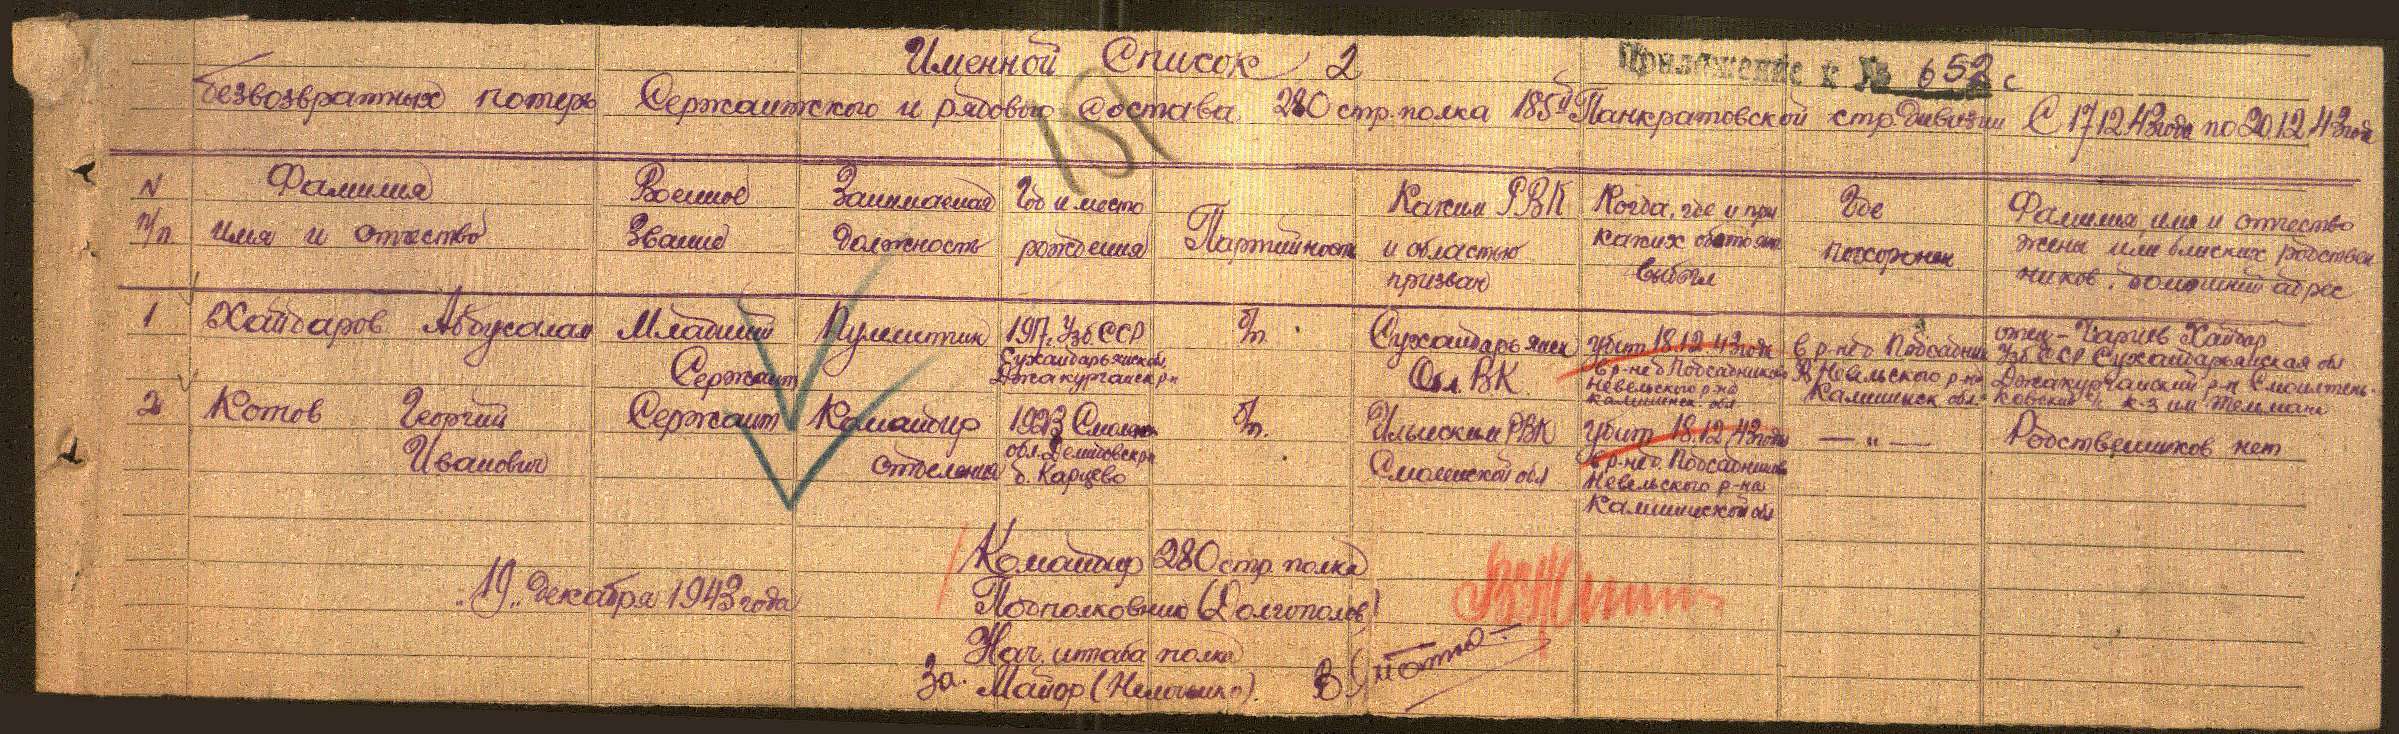 Именной Список 2
Приложение к № 652 с
безвозвратных потерь Сержантского и рядового состава 280 стр. полка 185й Панкратовской стр. дивизии С 17 12 43 года по 20 12 43 год
151
N п/п.
Фамилия имя и отчество
Военное Звание
Занимаемая должность
Год и место рождения
Партийность
Каким РВК и областью призван
Когда, где и при каких обстоят. выбыл
Где похоронен
Фамилия, имя и отчество жены или близких родствен ников. домашний адрес
1
Хайдаров Абдусалам
Младший Сержант
Пулеметчик
191 Узб. ССР
Сурхандарьинской
Джакурганск р-н
б/п.
Сурхандарьинск
Обл. ВК.
Убит 18.12.43 года
в р-не д. Подсадников
Невельского р-на
Калининск. обл
в р-не д. Подсадник
Невельского р-на
Калининск обл.
отец - Хайдар
Узб. ССР Сурхандарьинская обл
Джакурганский р-н
к-з им. Тельмана
2
Котов Георгий
Иванович
Сержант
Командир
отделения
1923 Смолен
обл. Демидовск р-н
д. Карцево
б/п.
Ильинским РВК
Смоленской обл
Убит 18.12.43 года
в р-не д. Подсадников
Невельского р-на
Калининской обл
— " —
Родственников нет
Командир 280 стр. полка
"19" декабря 1943 года
Подполковник (Долгополов)
Нач. штаба полка
За. Майор